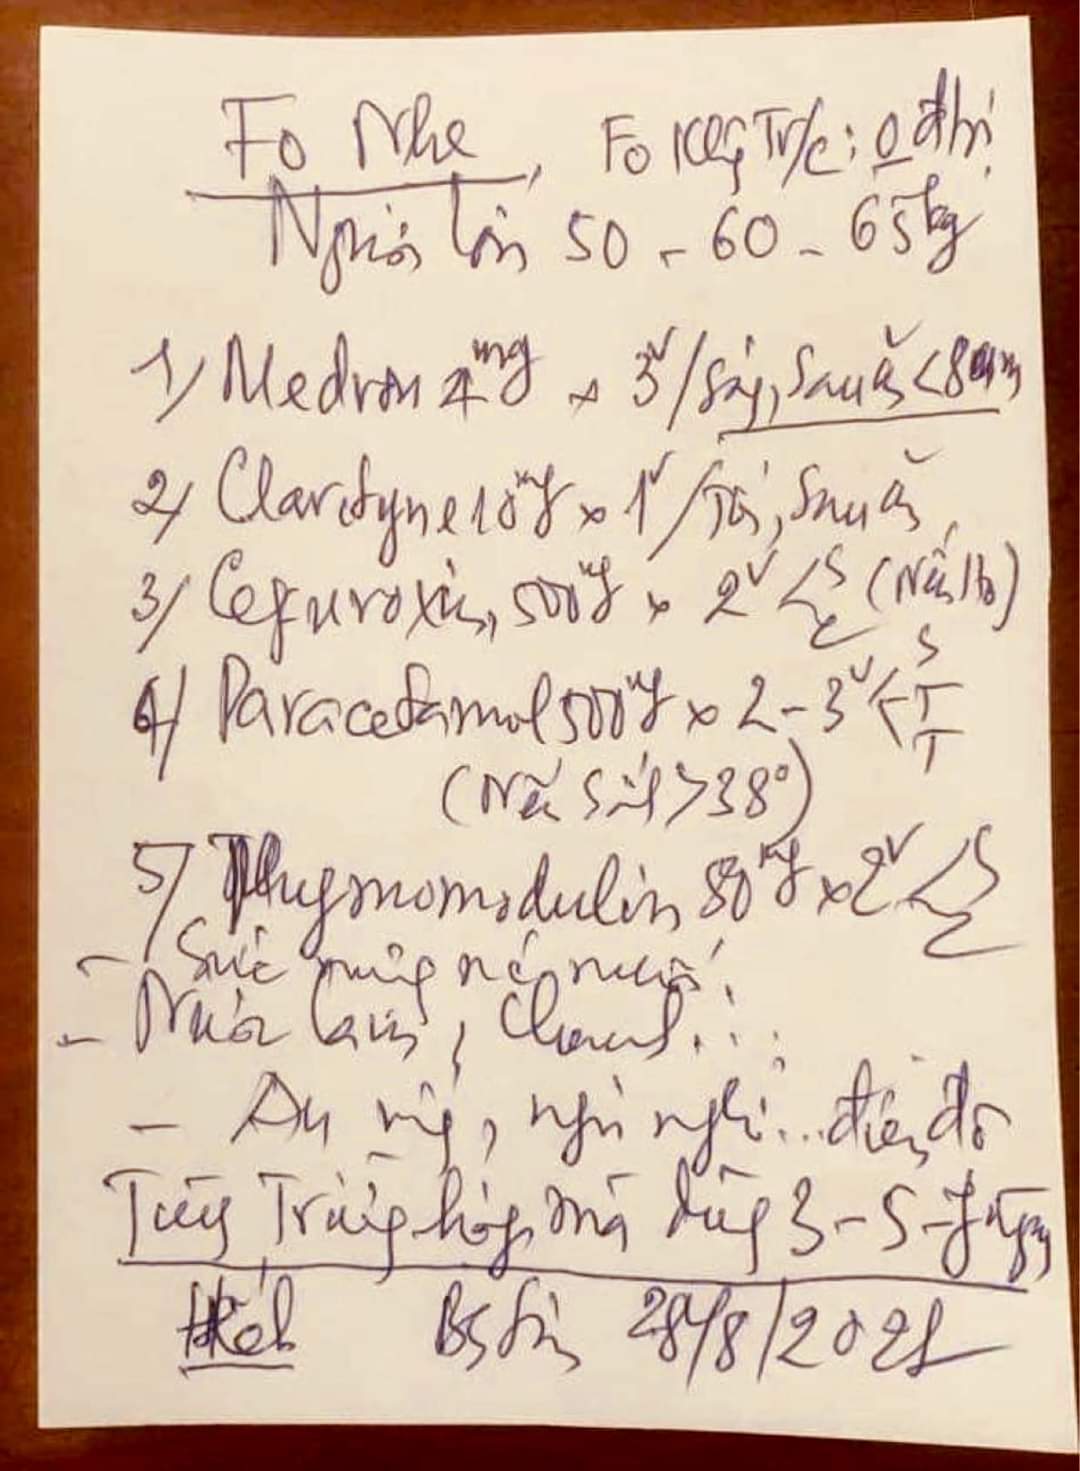 Fo Nhẹ, Fo Kog Tr/c: 0 đtrị
Người lớn 50 - 60 - 65kg
1/ Medron 4mg x 3v/sáng, Sau ă <8am
2/ Clarityne 10mg x 1v/Tối, Sau ă
3/ Cefuroxim, 500mg x 2v < S C (Nếu Ho)
4/ Paracetamol 500mg x 2-3v < S T T
(Nếu Sốt >38°)
5/ Thymomodulin 80mg x 2v < S C
- Súc miệng nước muối
- Nước cam, chanh...
- Ăn uống, ngủ nghỉ... điều độ
Tùy Trường hợp mà dùng 3-5-7 ngày
Bs 28/8/2021